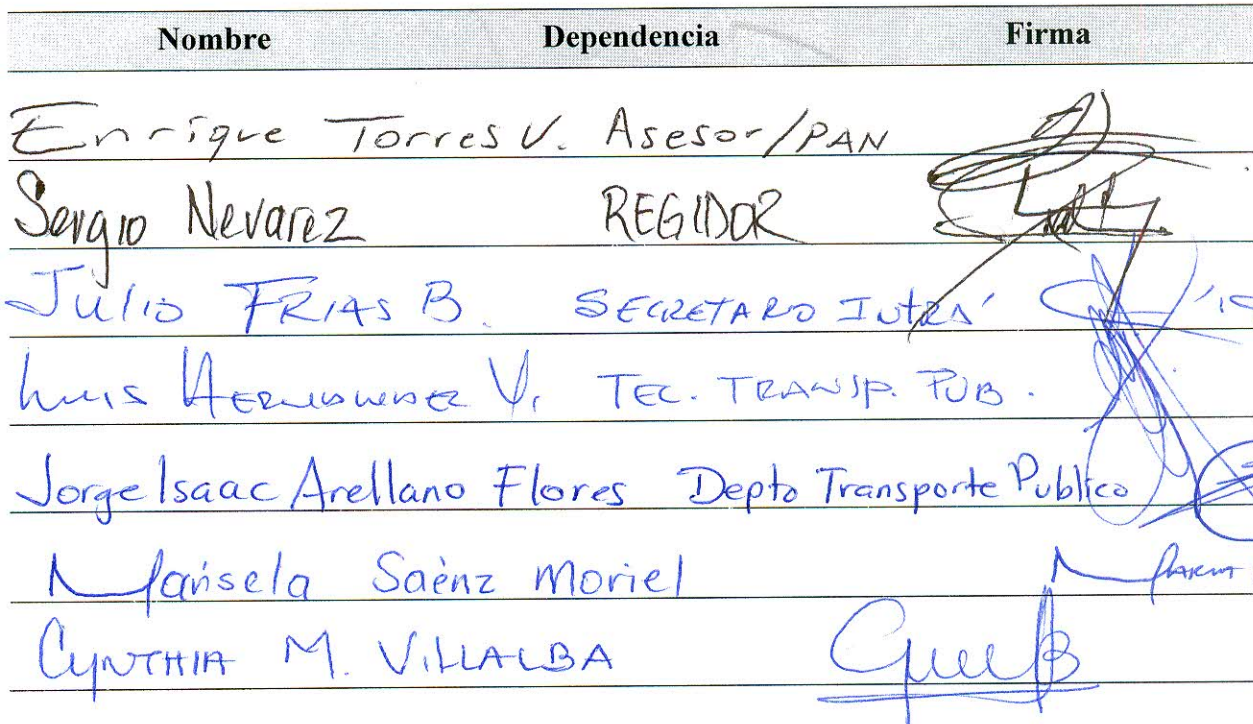 Nombre Dependencia Firma
Enrique Torres V. Asesor/PAN
Sergio Nevarez REGIDOR
Julio FRIAS B. SECRETARO INTRA'
Luis V. TEC. TRANSP. PUB.
Jorge Isaac Arellano Flores Depto Transporte Publico
Marisela Saénz Moriel
CYNTHIA M. VILLALBA